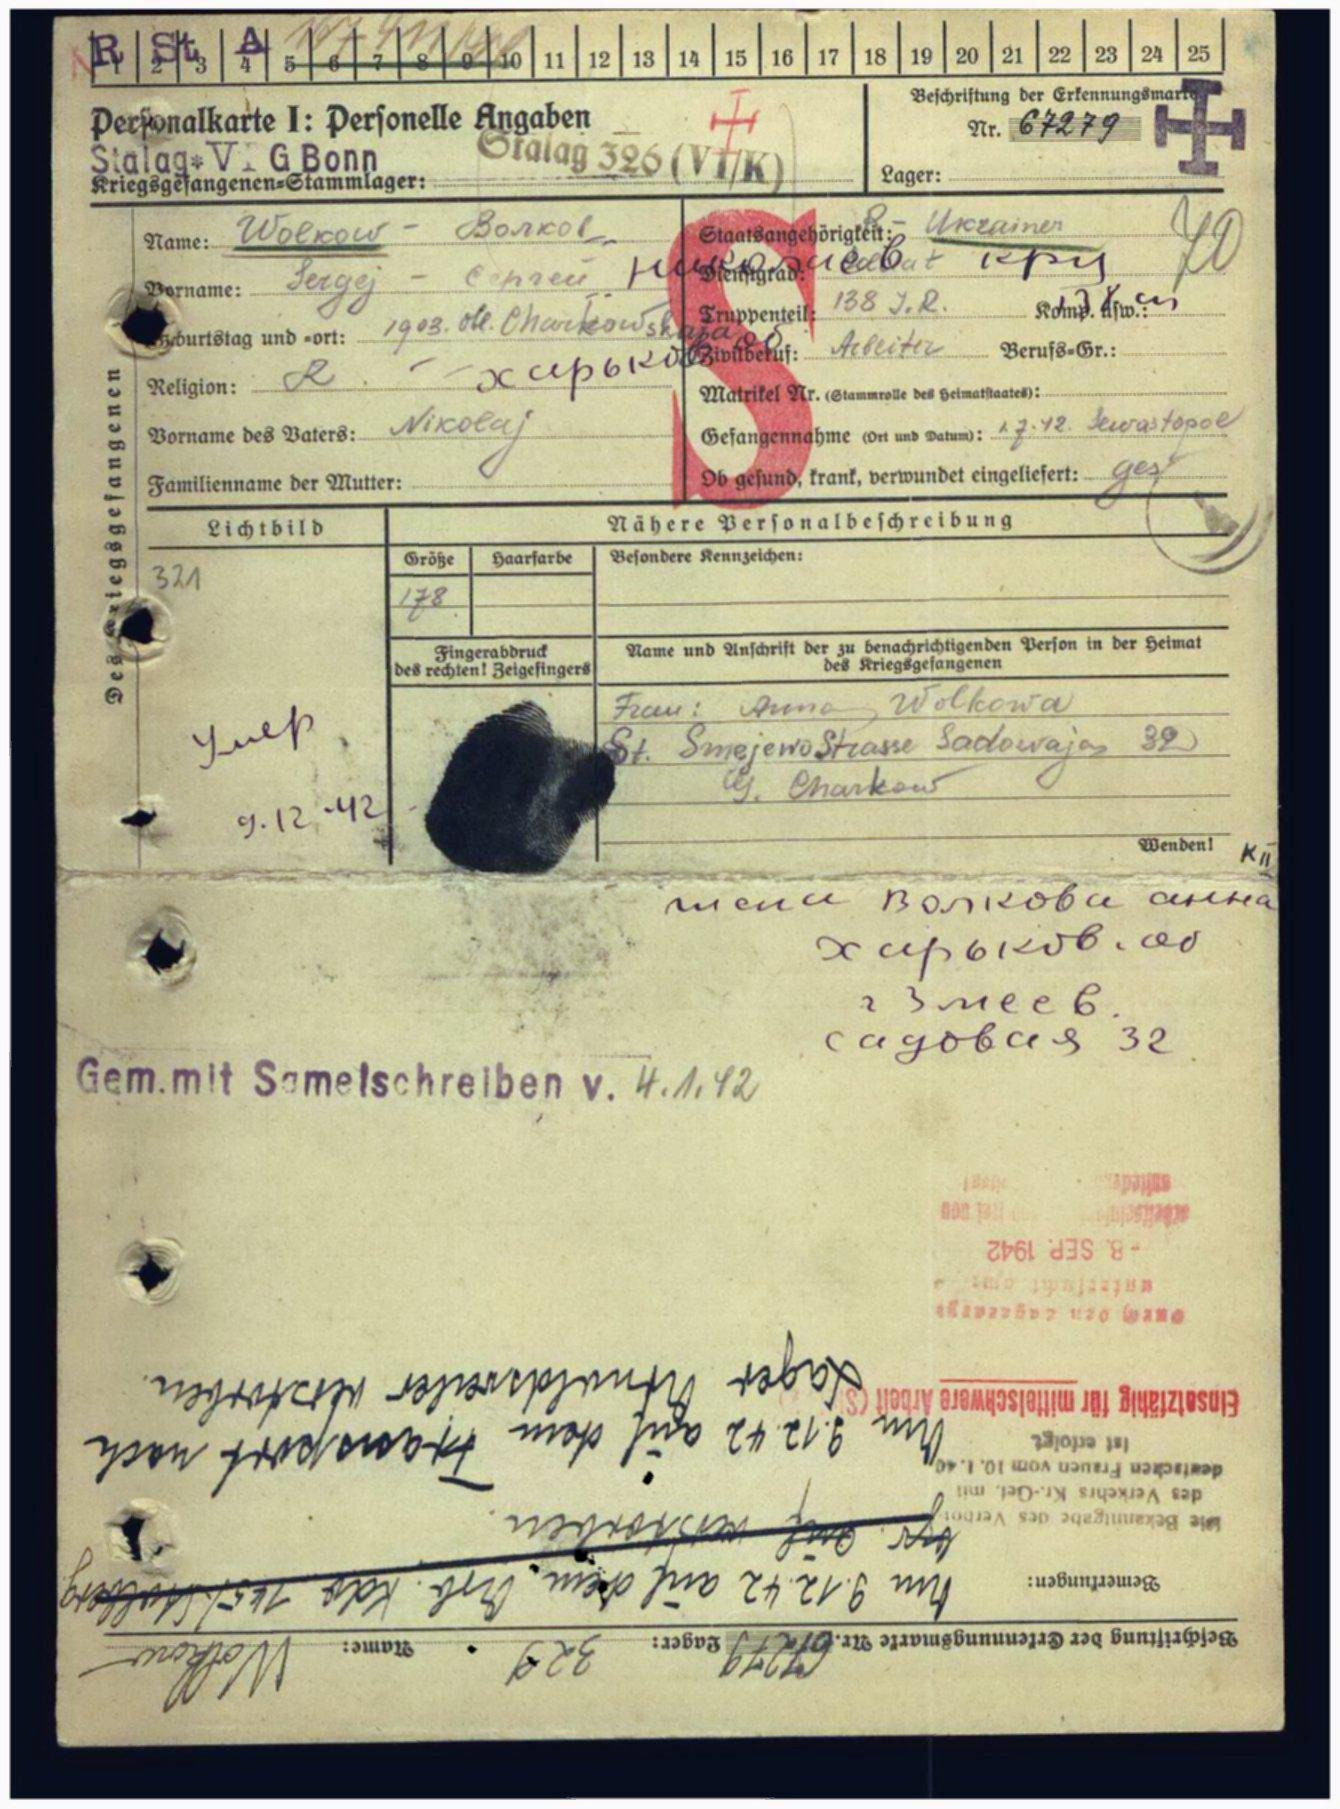 R St A
1 2 3 4 5 6 7 8 9 10 11 12 13 14 15 16 17 18 19 20 21 22 23 24 25
Personalkarte I: Personelle Angaben
Stalag VI G Bonn
Stalag 326 (VI/K)
Kriegsgefangenen-Stammlager:
Beschriftung der Erkennungsmarke
Nr. 67279
Lager:
Des Kriegsgefangenen
Name: Wolkow - Волков
Vorname: Sergej - Сергей
Geburtstag und -ort: 1903. Obl. Charkowskaja
Religion: R
Vorname des Vaters: Nikolaj
Familienname der Mutter:
николаев
харьков об
S
Staatsangehörigkeit: R- Ukrainer
Dienstgrad: Soldat
Truppenteil: 138 J.R. Komp. usw.:
Zivilberuf: Arbeiter Berufs-Gr.:
Matrikel Nr. (Stammrolle des Heimatstaates):
Gefangennahme (Ort und Datum): 1.7.42. Sewastopol
Ob gesund, krank, verwundet eingeliefert: ges
Lichtbild
321
Nähere Personalbeschreibung
Größe Haarfarbe Besondere Kennzeichen:
178
Fingerabdruck
des rechten! Zeigefingers
Name und Anschrift der zu benachrichtigenden Person in der Heimat
des Kriegsgefangenen
Frau: Anna Wolkowa
St. Smejewo Strasse Sadowaja 32
G. Charkow
Умер
9.12-42
Wenden!
K II
жена Волкова анна
харьков. об
г Змеев.
садовая 32
Gem.mit Samelschreiben v. 4.1.42
Beschriftung der Erkennungsmarke Nr. 67279 Lager: 329 Name: Wolkow
Bemerkungen:
Am 9.12.42 auf dem Arb. Kdo 745 Stolberg
verstorben.
Am 9.12.42 auf dem Transport nach
Lager Arnoldsweiler verstorben.
Die Bekanntgabe des Verbots
des Verkehrs Kr.-Gef. mit
deutschen Frauen vom 10.1.40
ist erfolgt
Einsatzfähig für mittelschwere Arbeit (S)
untersucht
- 8. SEP. 1942